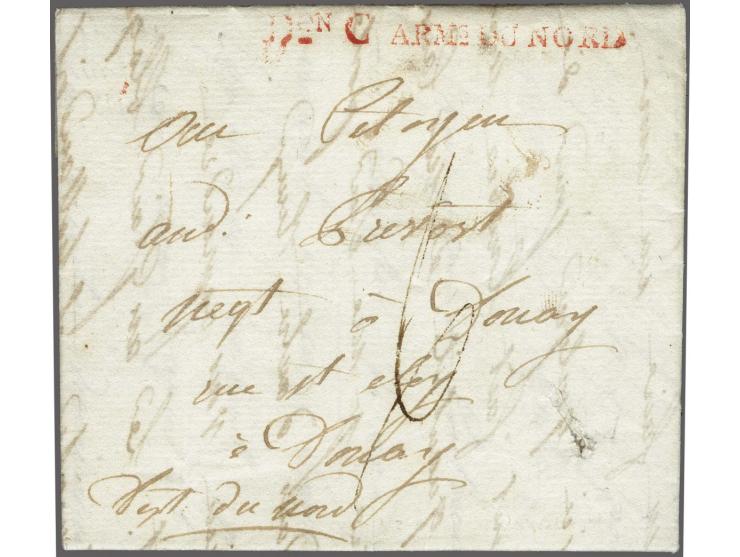 Don C ARMée DU NORD
Au Citoyen
and. Prevost
negt à Douay
rue st eloy
à Douay
Dept du nord
6